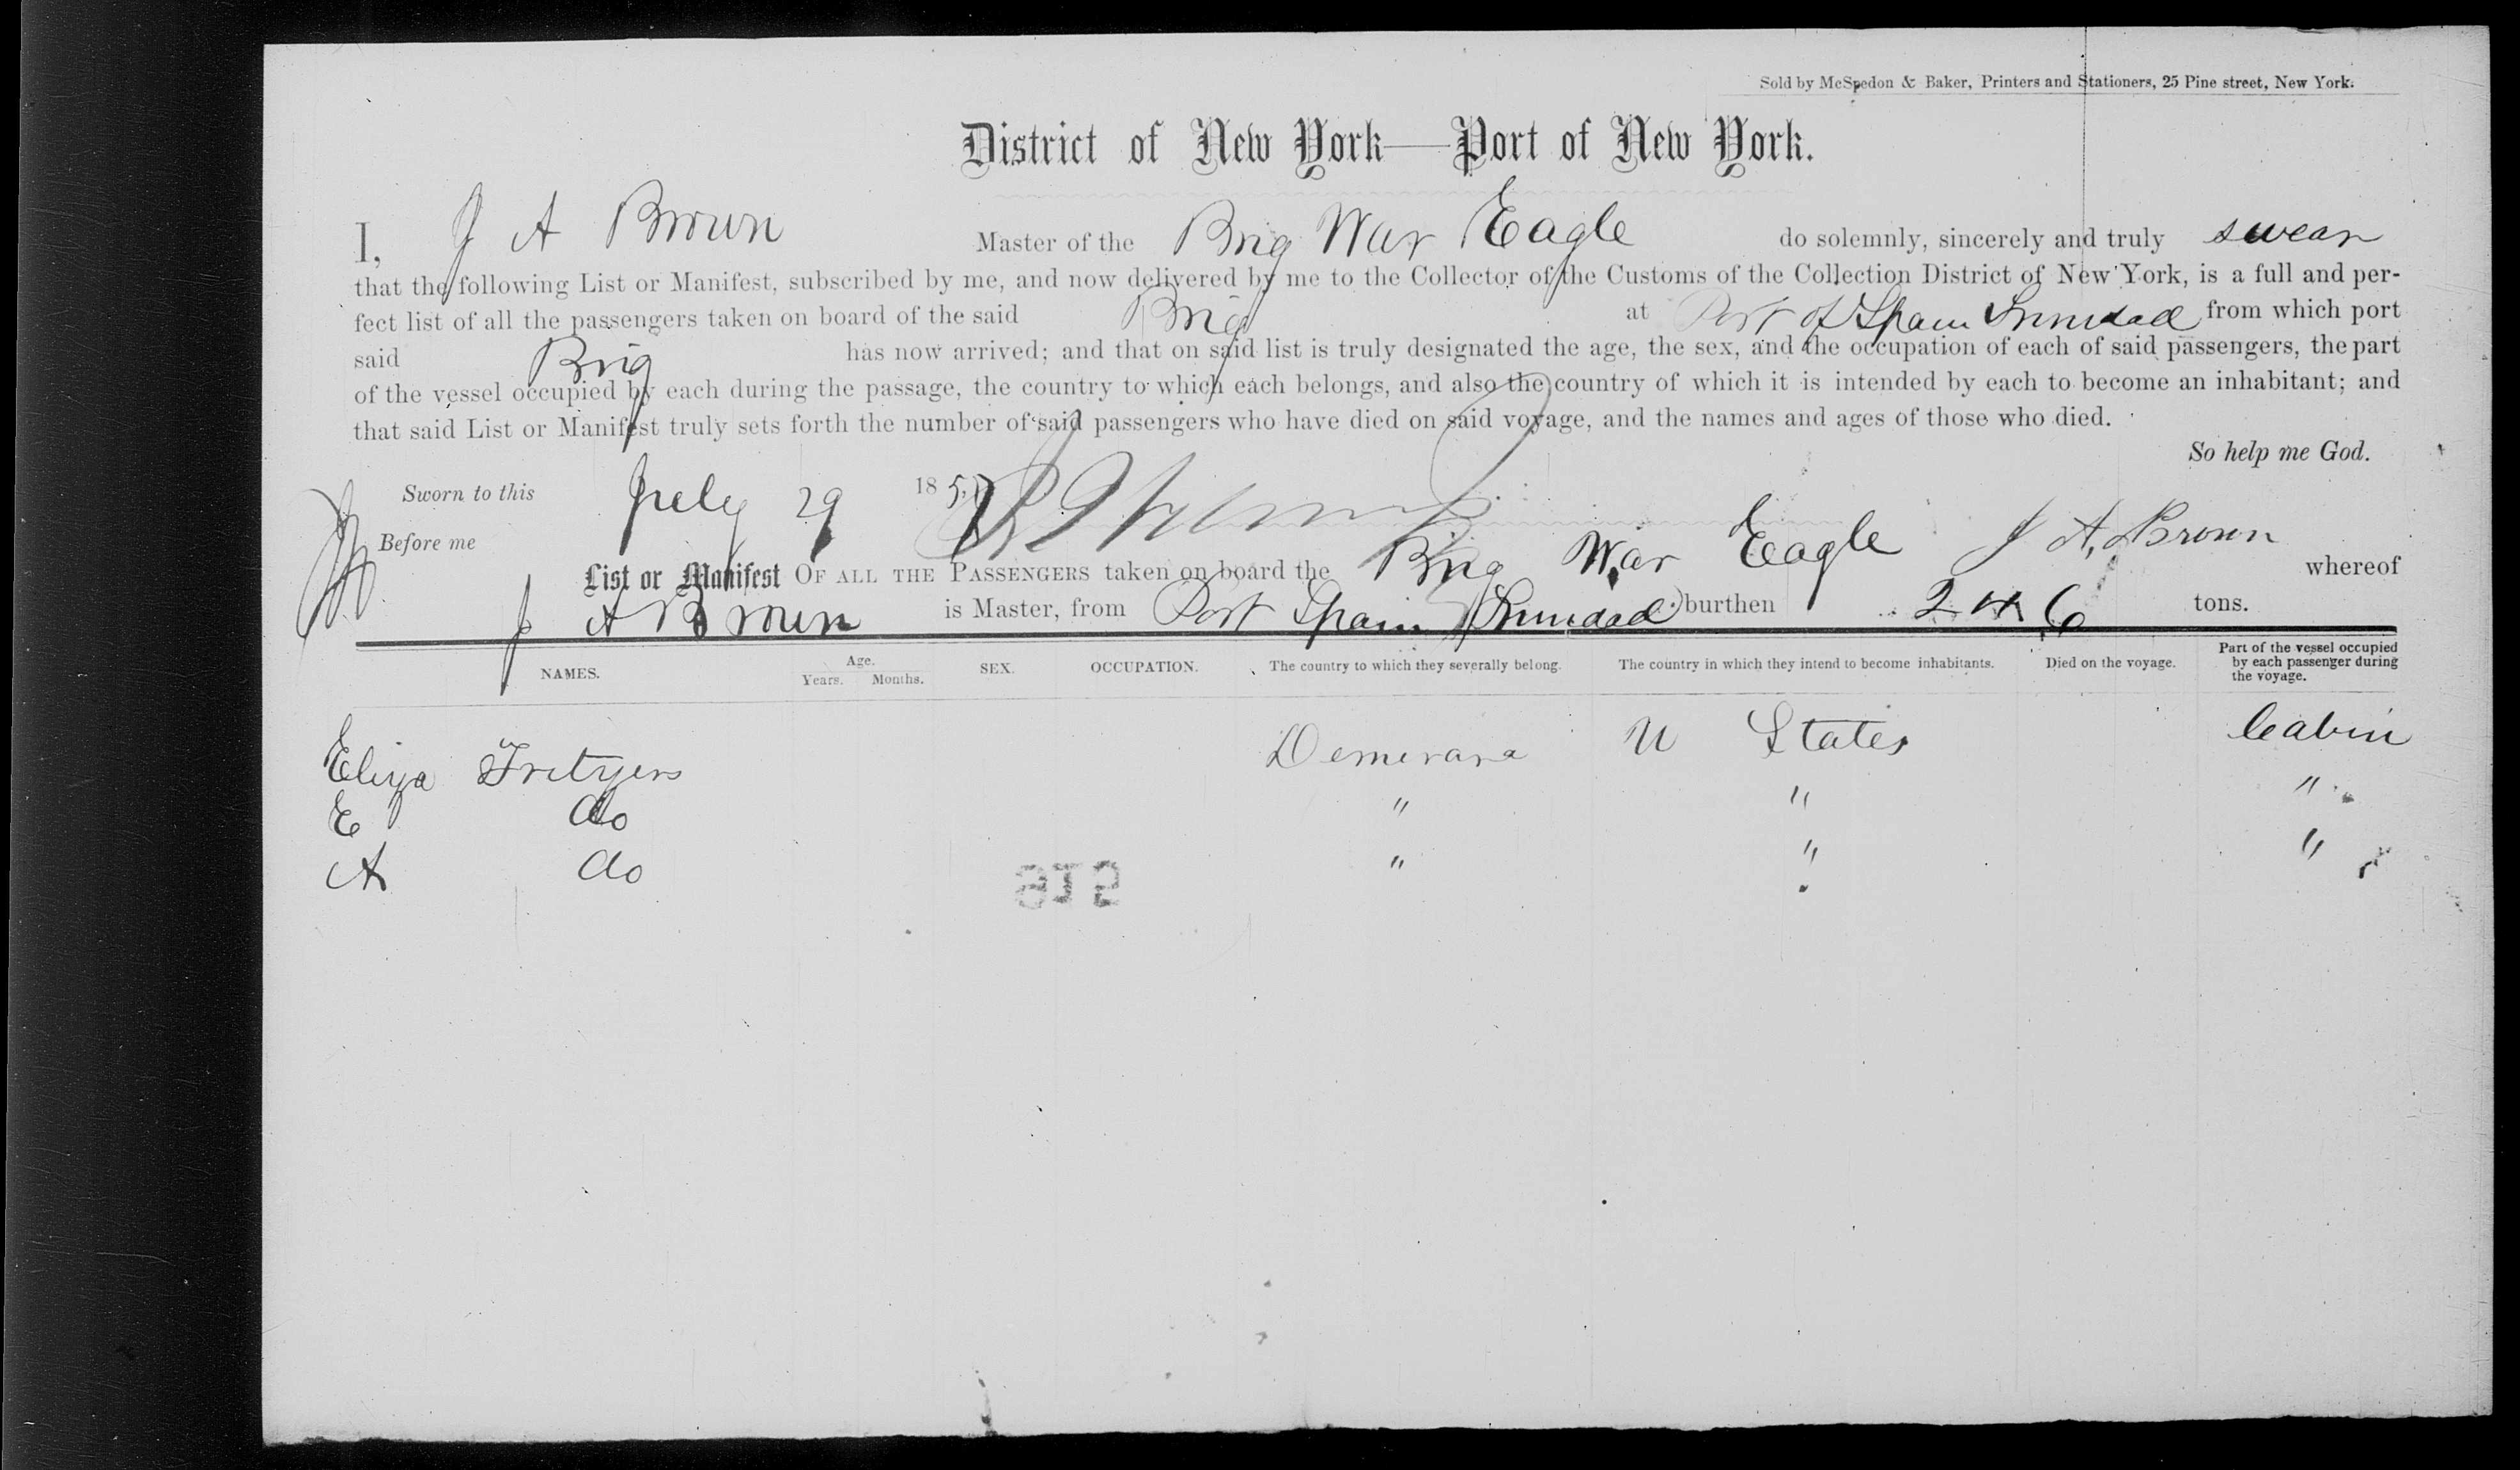 Sold by McSpedon & Baker, Printers and Stationers, 25 Pine street, New York.
District of New York—Port of New York.
I, J A Brown Master of the Brig War Eagle do solemnly, sincerely and truly swear
that the following List or Manifest, subscribed by me, and now delivered by me to the Collector of the Customs of the Collection District of New York, is a full and per-
fect list of all the passengers taken on board of the said Brig at Port of Spain Trinidad from which port
said Brig has now arrived; and that on said list is truly designated the age, the sex, and the occupation of each of said passengers, the part
of the vessel occupied by each during the passage, the country to which each belongs, and also the country of which it is intended by each to become an inhabitant; and
that said List or Manifest truly sets forth the number of said passengers who have died on said voyage, and the names and ages of those who died.
So help me God.
Sworn to this July 29 185
Before me J A. Brown
List or Manifest OF ALL THE PASSENGERS taken on board the Brig War Eagle whereof
J A Brown is Master, from Port Spain Trinidad burthen 246 tons.
NAMES. Age. Years. Months. SEX. OCCUPATION. The country to which they severally belong. The country in which they intend to become inhabitants. Died on the voyage. Part of the vessel occupied by each passenger during the voyage.
Eliza Demerara U States Cabin
E do " " "
A do " " "